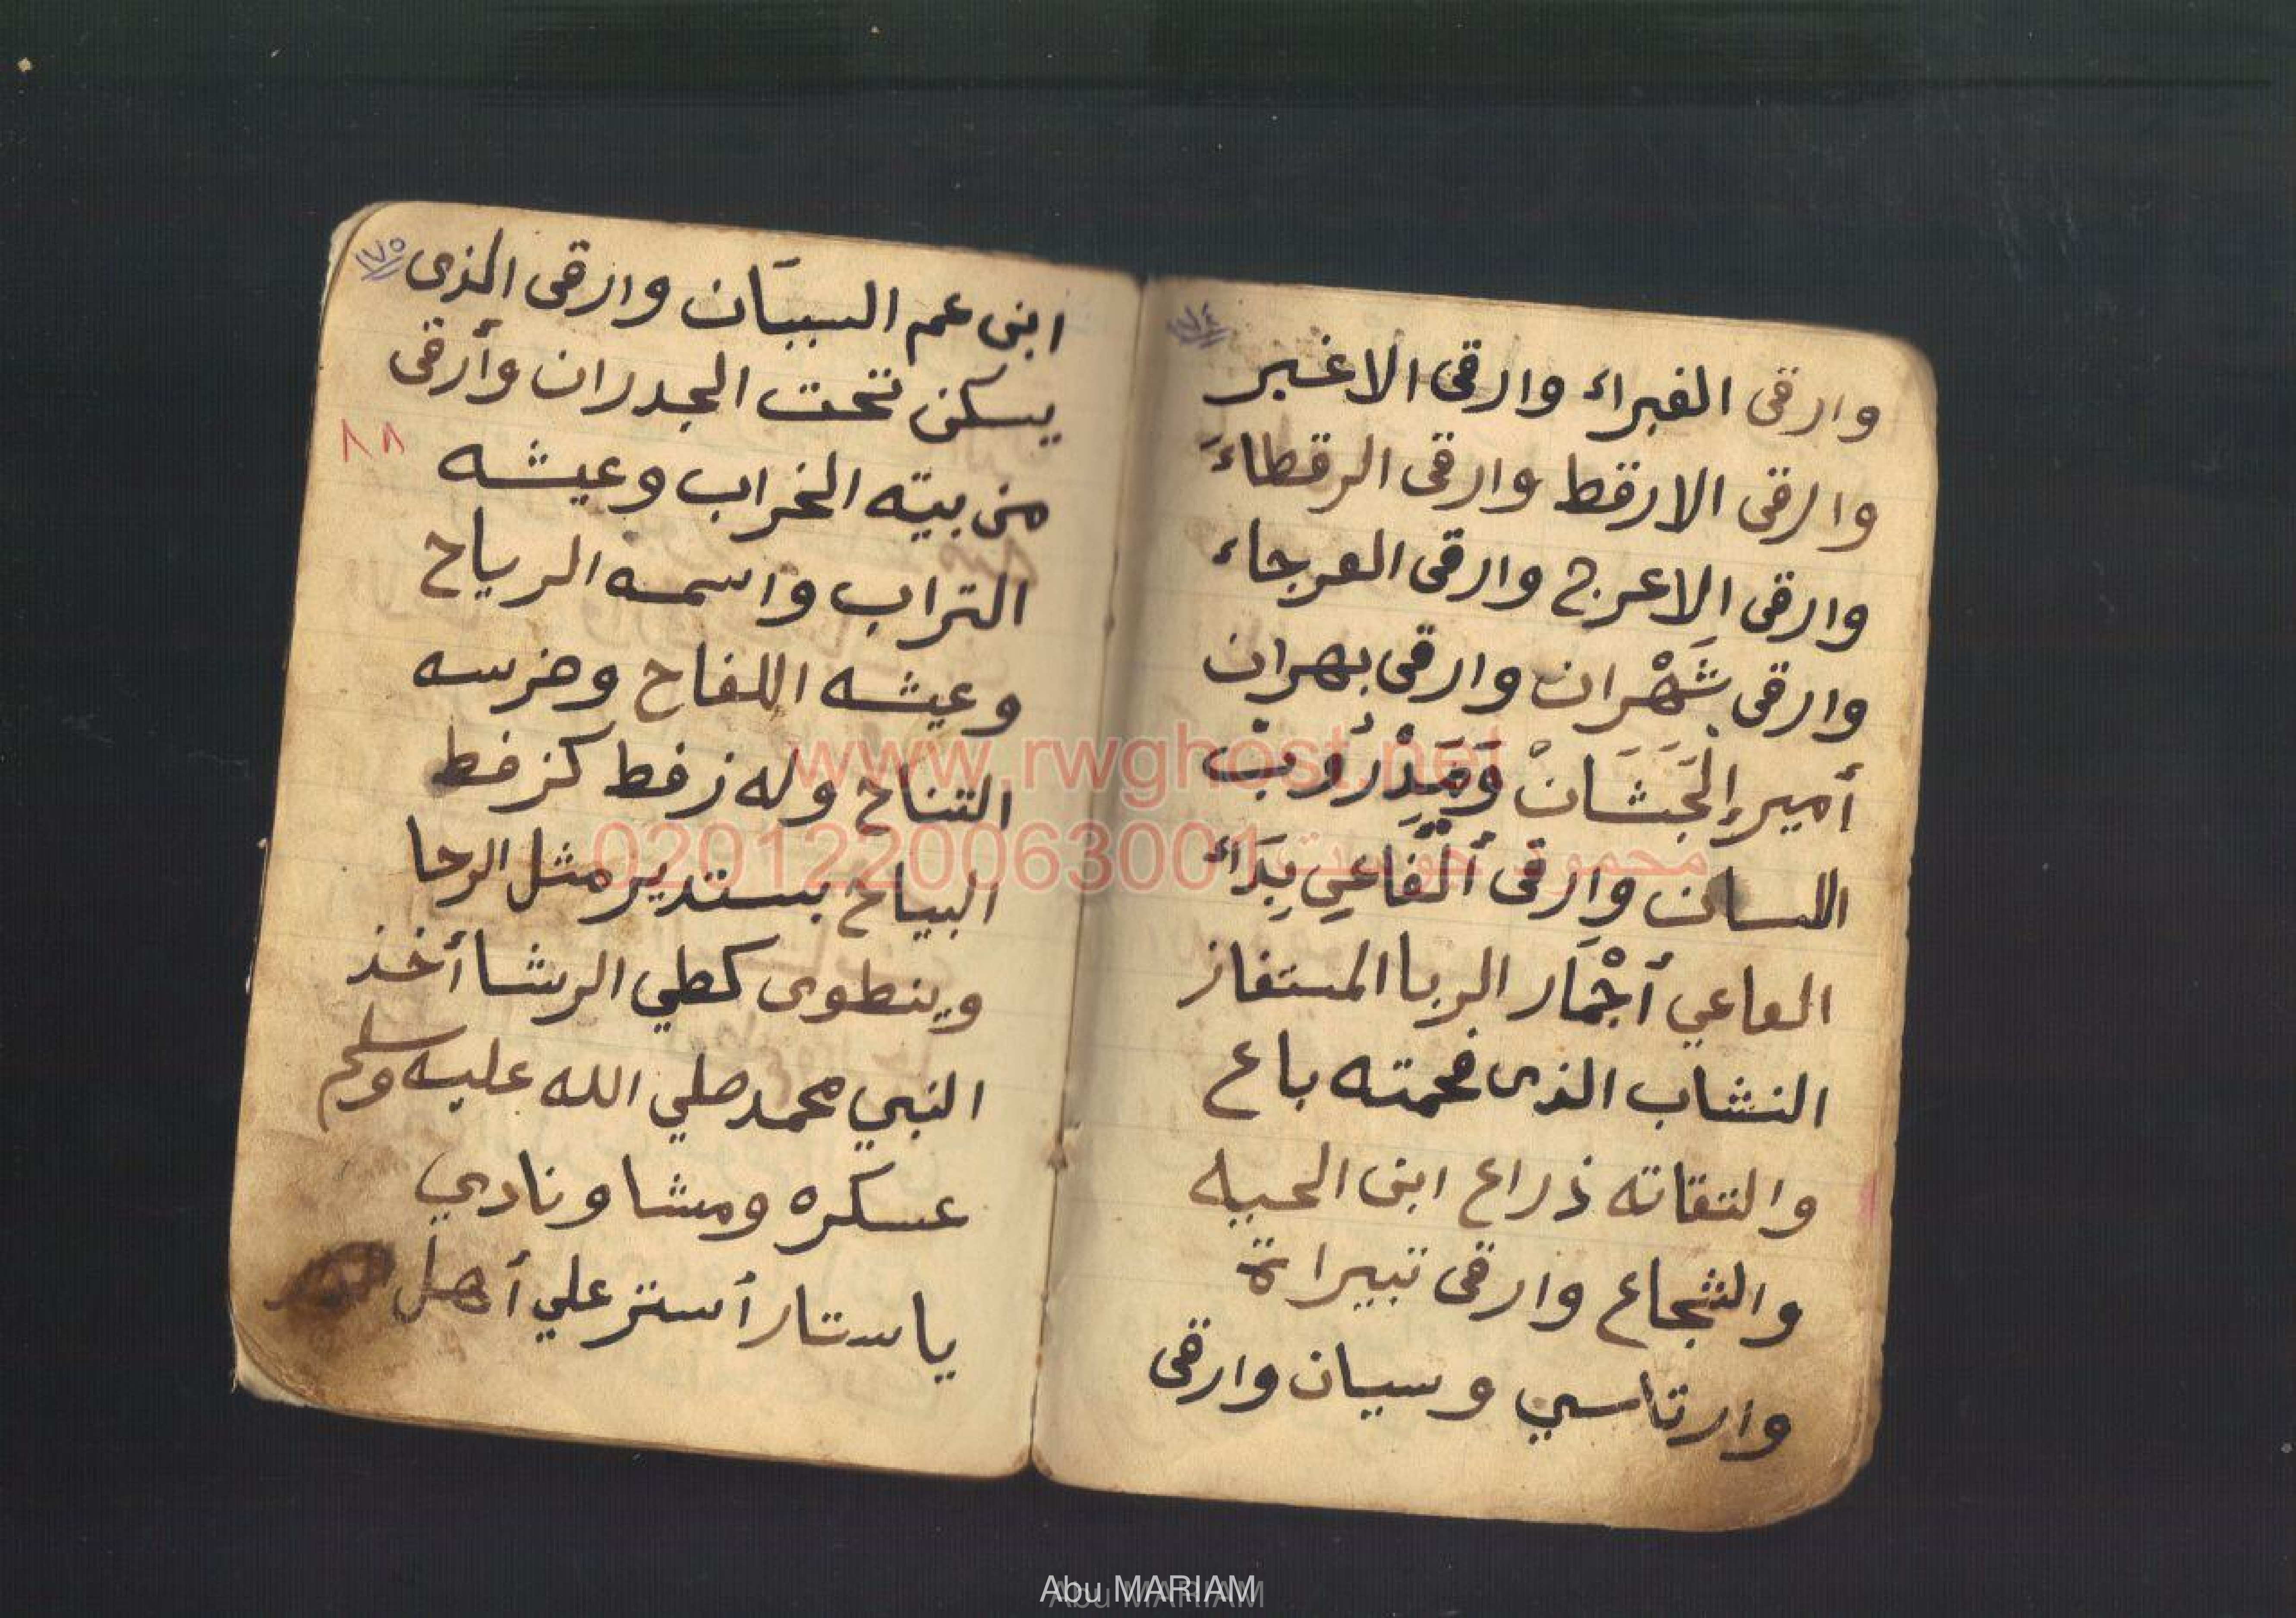 ١٧٤
وارقى الغبراء وارقى الاغبر
وارقى الارقط وارقى الرقطاء
وارقى الاعرج وارقى العرجاء
وارقى شَهْران وارقى بهران
أمير الجَشَانْ
اللسان وارقى ألفاعي بِدَاءُ
العاعي أجْمار الربا المستفاز
النشاب الذى فحمته باع
والتقاته ذراع ابن الحيه
والشجاع وارقى تبيراة
وارتاسي وسيان وارقى
١٧٥
ابن عم السببان وارقى الذى
يسكن تحت الجدران وأرقى
٨٨
من بيته الخراب وعيشه
التراب واسمه الرياح
وعيشه اللفاح وضرسه
التناح وله زفط كزفط
البياح يستدير مثل الرحا
وينطوى كطي الرشا أخذ
النبي محمد صلي الله عليه وسلم
عسكره ومشا ونادي
يا ستار أستر علي أهل
www.rwghost.net
02012200630010 محمود
Abu MARIAM